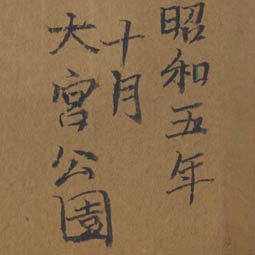 昭和五年
十月
大宮公園